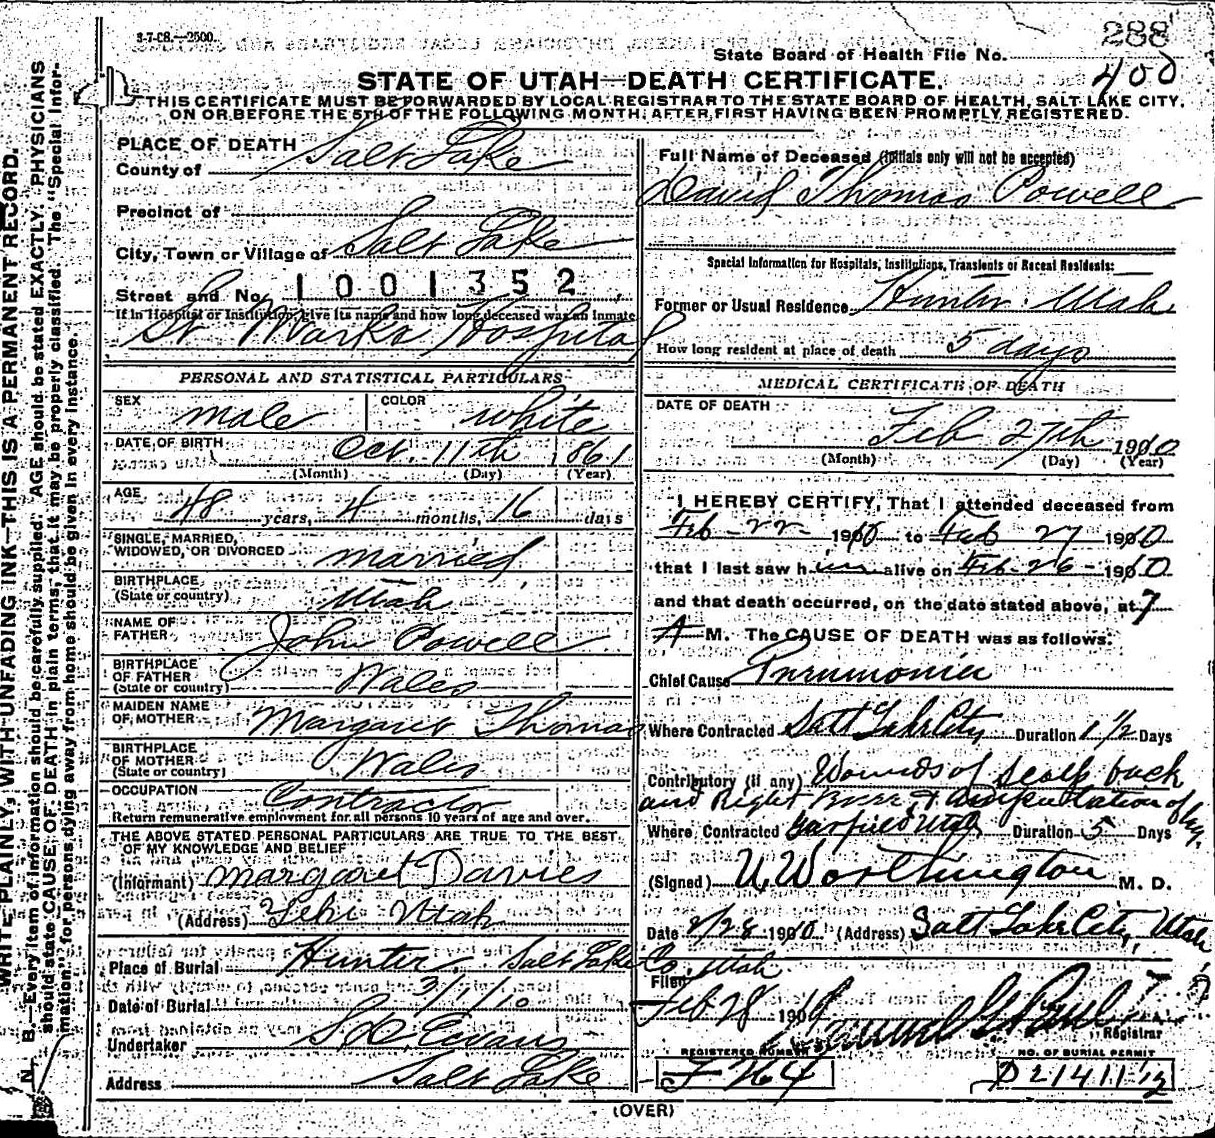 3-7-08.—2500.
288
State Board of Health File No. 400
STATE OF UTAH—DEATH CERTIFICATE.
THIS CERTIFICATE MUST BE FORWARDED BY LOCAL REGISTRAR TO THE STATE BOARD OF HEALTH, SALT LAKE CITY,
ON OR BEFORE THE 5TH OF THE FOLLOWING MONTH, AFTER FIRST HAVING BEEN PROMPTLY REGISTERED.
WRITE PLAINLY, WITH UNFADING INK—THIS IS A PERMANENT RECORD.
N. B.—Every item of information should be carefully supplied. AGE should be stated EXACTLY. PHYSICIANS
should state CAUSE OF DEATH in plain terms, that it may be properly classified. The "Special Infor-
mation" for persons dying away from home should be given in every instance.
PLACE OF DEATH
County of Salt Lake
Precinct of
City, Town or Village of Salt Lake
Street and No. 1001352
If in Hospital or Institution, give its name and how long deceased was an inmate
St Marks Hospital
PERSONAL AND STATISTICAL PARTICULARS
SEX male COLOR white
DATE OF BIRTH Oct. 11th 1861
(Month) (Day) (Year)
AGE 48 years, 4 months, 16 days
SINGLE, MARRIED,
WIDOWED, OR DIVORCED married
BIRTHPLACE
(State or country) Utah
NAME OF
FATHER John Powell
BIRTHPLACE
OF FATHER
(State or country) Wales
MAIDEN NAME
OF MOTHER Margaret Thomas
BIRTHPLACE
OF MOTHER
(State or country) Wales
OCCUPATION Contractor
Return remunerative employment for all persons 10 years of age and over.
THE ABOVE STATED PERSONAL PARTICULARS ARE TRUE TO THE BEST
OF MY KNOWLEDGE AND BELIEF
(Informant) Margaret Davies
(Address) Lehi Utah
Place of Burial Hunter, Salt Lake Co. Utah
Date of Burial 3/1/10
Undertaker S. D. Evans
Address Salt Lake
Full Name of Deceased (initials only will not be accepted)
David Thomas Powell
Special Information for Hospitals, Institutions, Transients or Recent Residents:
Former or Usual Residence Hunter Utah
How long resident at place of death 5 days
MEDICAL CERTIFICATE OF DEATH
DATE OF DEATH
Feb 27th 1910
(Month) (Day) (Year)
I HEREBY CERTIFY, That I attended deceased from
Feb-22-1910 to Feb 27 1910
that I last saw him alive on Feb-26-1910
and that death occurred, on the date stated above, at 7
A M. The CAUSE OF DEATH was as follows:
Chief Cause Pneumonia
Where Contracted Salt Lake City Duration 1 1/2 Days
Contributory (if any) Wounds of scalp back
and Right & amputation of leg.
Where Contracted Garfield Utah Duration 5 Days
(Signed) U. Worthington M. D.
Date 2/28 1910 (Address) Salt Lake City, Utah
Filed
Feb 28 1910
Registrar
REGISTERED NUMBER
F 264
NO. OF BURIAL PERMIT
D 21411 1/2
(OVER)